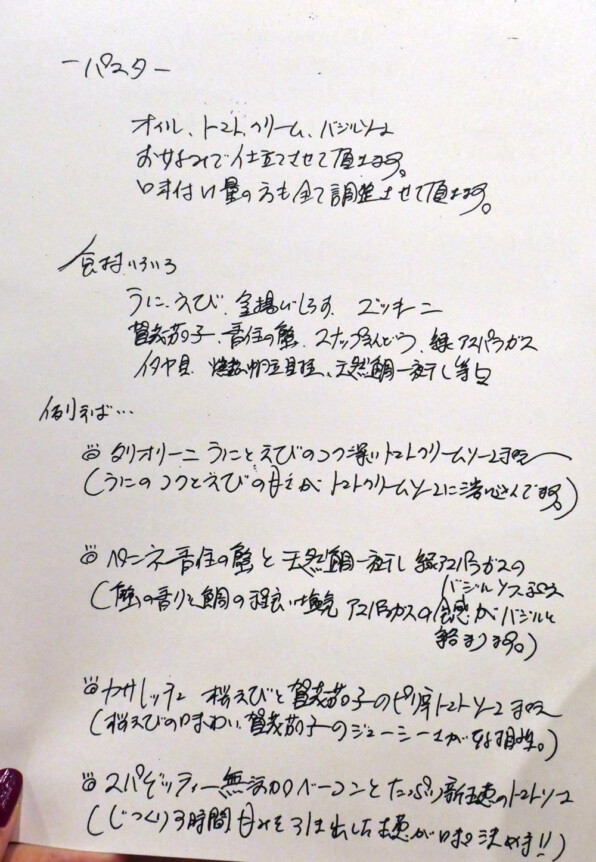 ーパスター
オイル、トマトクリーム、バジルソース
お好みで仕立てさせて頂きます。
味付け量の方も全て調整させて頂きます。
食材いろいろ
うに、えび、釜揚げしらす、ズッキーニ
賀茂茄子、香住の蟹、スナップえんどう、緑アスパラガス
イタヤ貝、帆立貝柱、天然鯛一夜干し等
例えば…
◎タリオリーニ うにとえびのコク深いトマトクリームソース
(うにのコクとえびの甘さがトマトクリームソースに溶け込んでます。)
◎ペンネ 香住の蟹と天然鯛一夜干し 緑アスパラガスの
バジルソース
(蟹の香りと鯛の程良い塩気 アスパラガスの食感がバジルと
絡まります。)
◎カサレッチェ 桜えびと賀茂茄子のピリ辛トマトソース
(桜えびの味わい、賀茂茄子のジューシーさが好相性。)
◎スパゲッティー 無添加ベーコンとたっぷり新玉葱のトマトソース
(じっくり3時間甘みを引き出した玉葱が味を決めます!!)